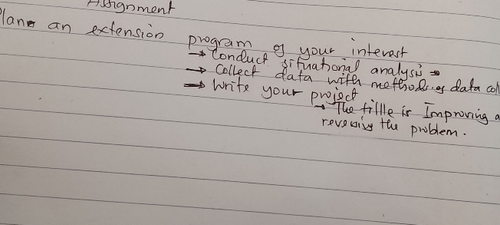 Assignment
Plan an extension program of your interest
→ Conduct situational analysis
→ Collect data with methods of data col
→ Write your project
→ The tittle is Improving a
reversing the problem.